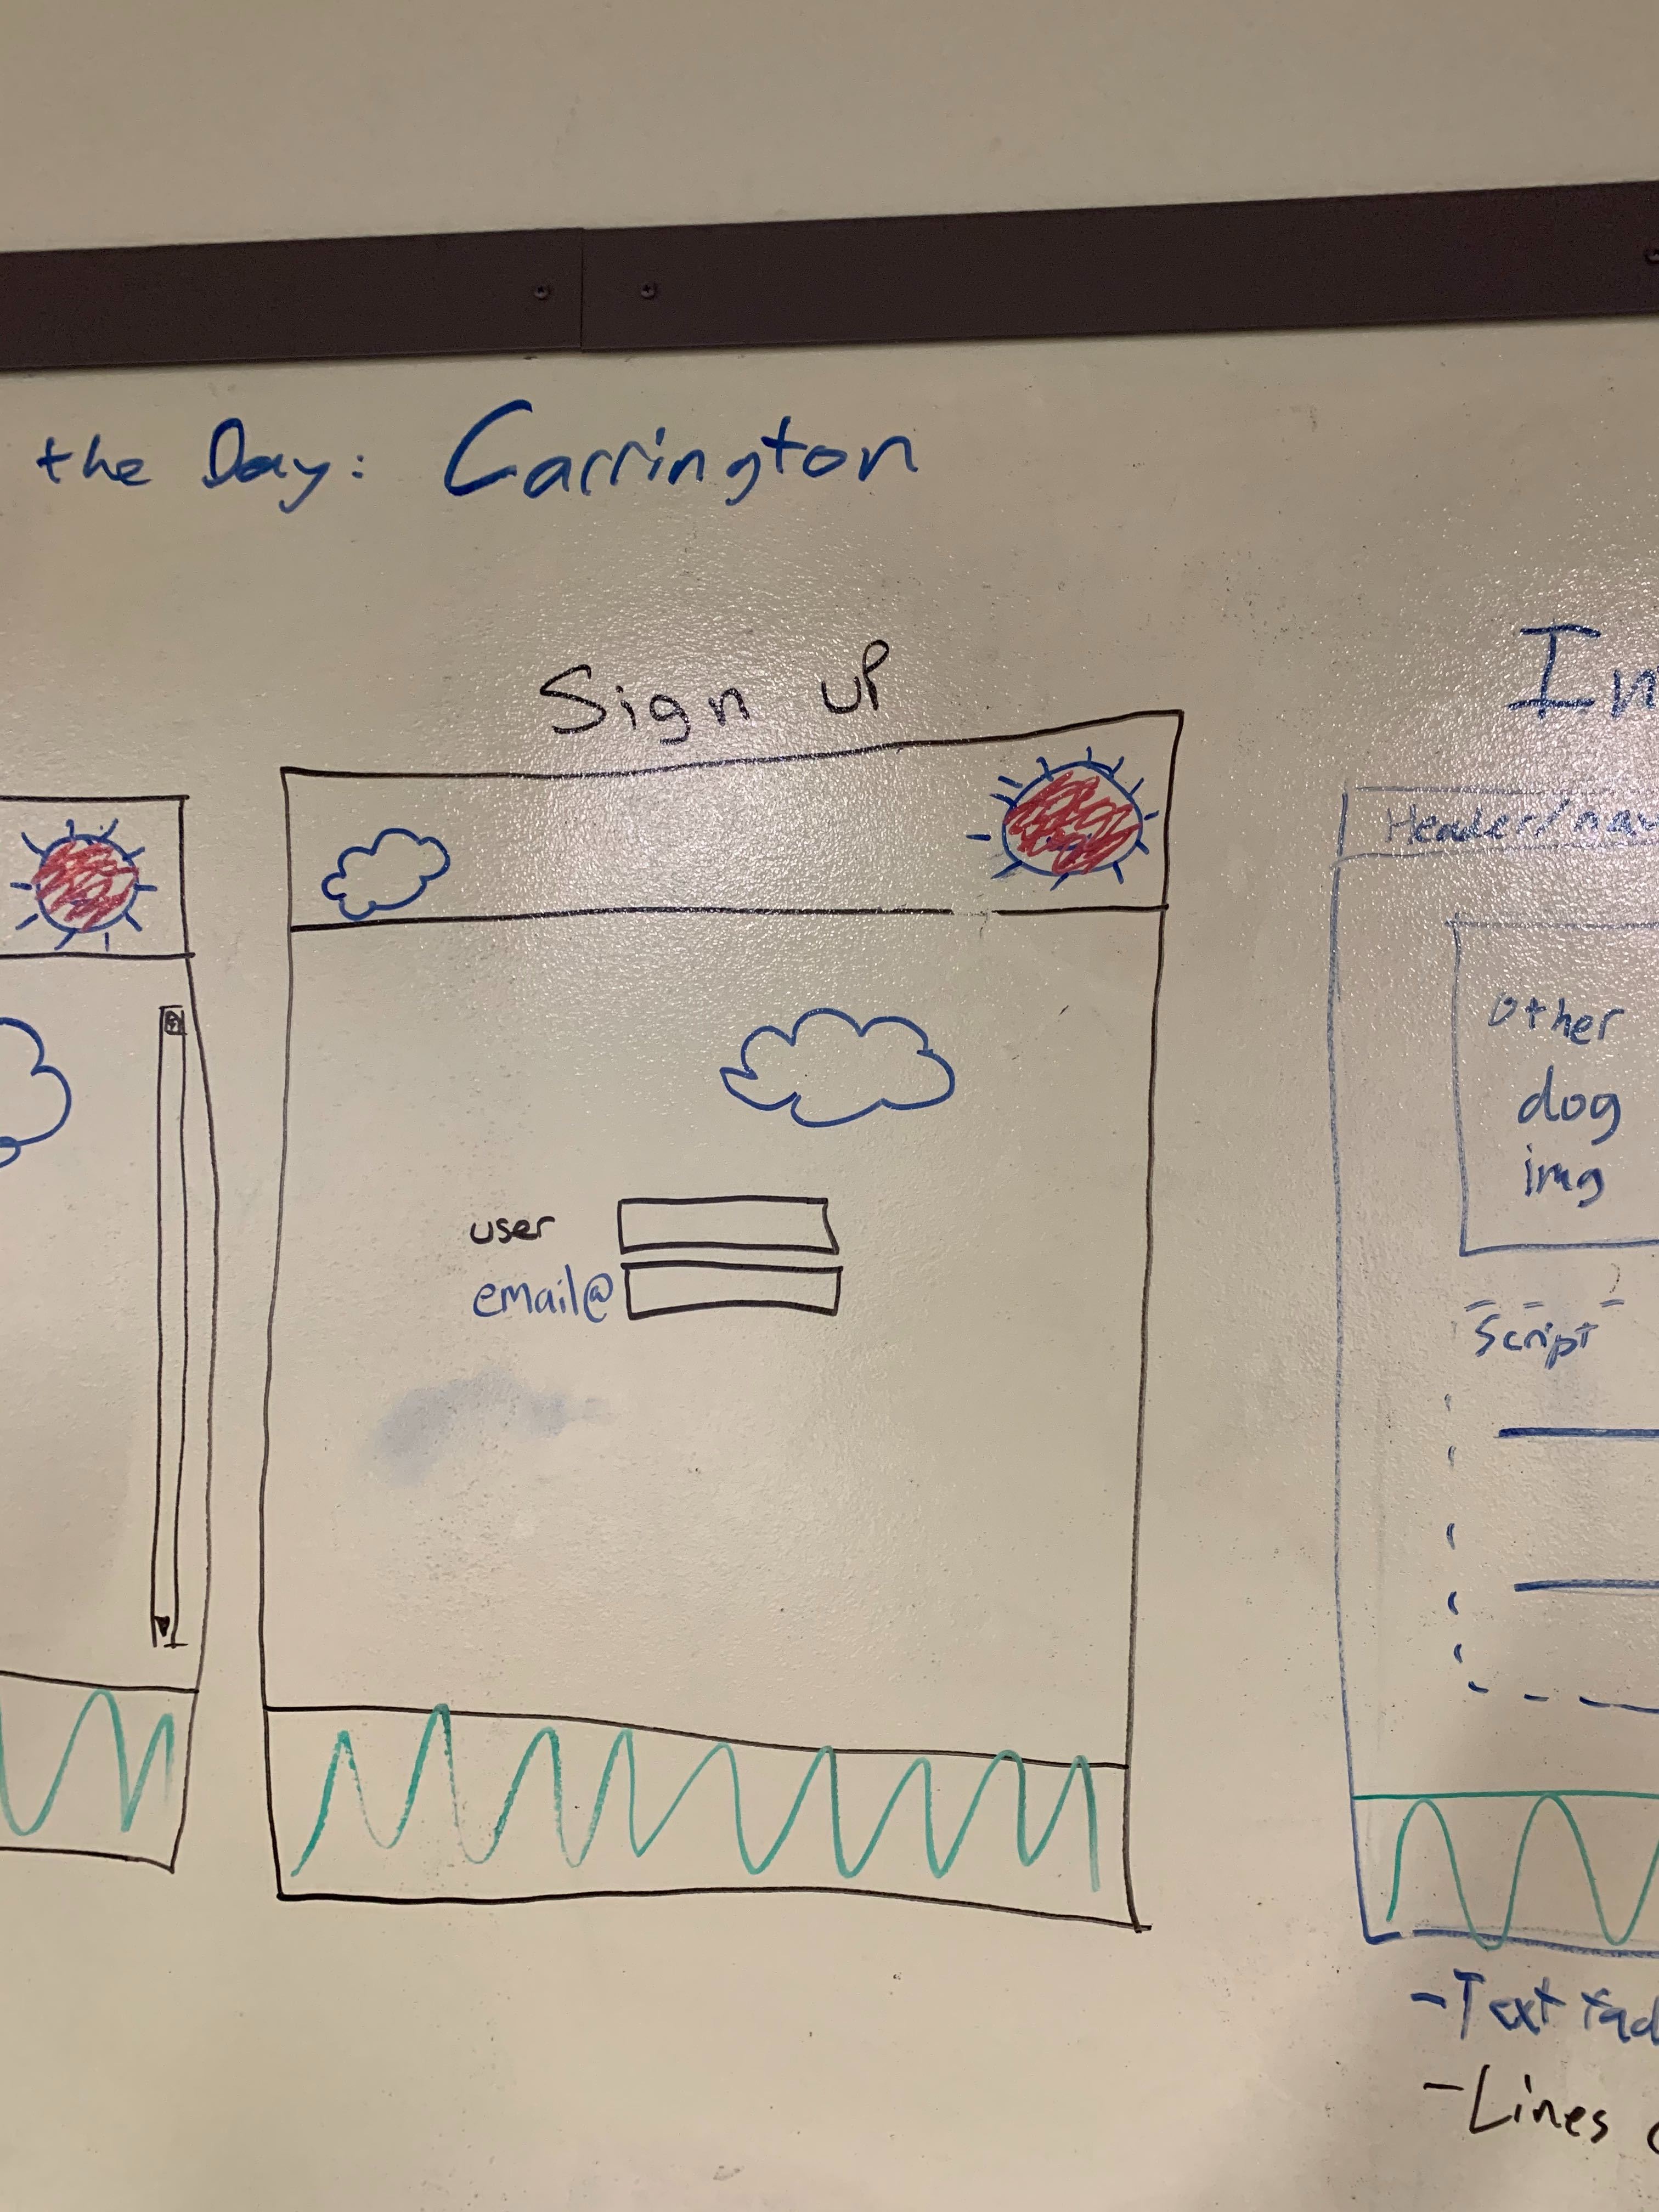 the Day: Carrington
Sign up
user
email@
In
Header/nav
Other
dog
img
Script
-Text fad
-Lines